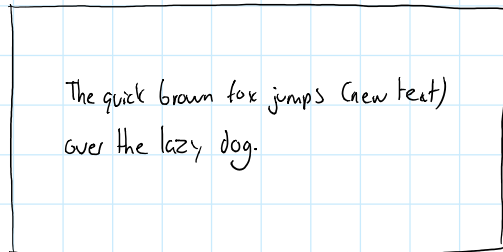 The quick brown fox jumps (new text)
over the lazy dog.